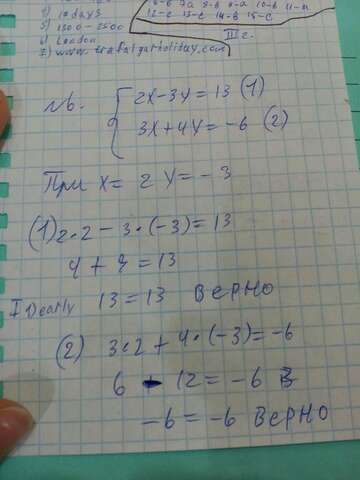 1) 10 days
5) 1500 - 2500
6) London
7) www.trafalgarholiday.com
12-c 13-c 14-b 15-c
№6. { 2x-3y=13 (1)
3x+4y=-6 (2)
При x= 2 y=-3
(1) 2·2-3·(-3)=13
4+9=13
Ideally 13=13 ВЕРНО
(2) 3·2+4·(-3)=-6
6 - 12=-6 В
-6=-6 ВЕРНО